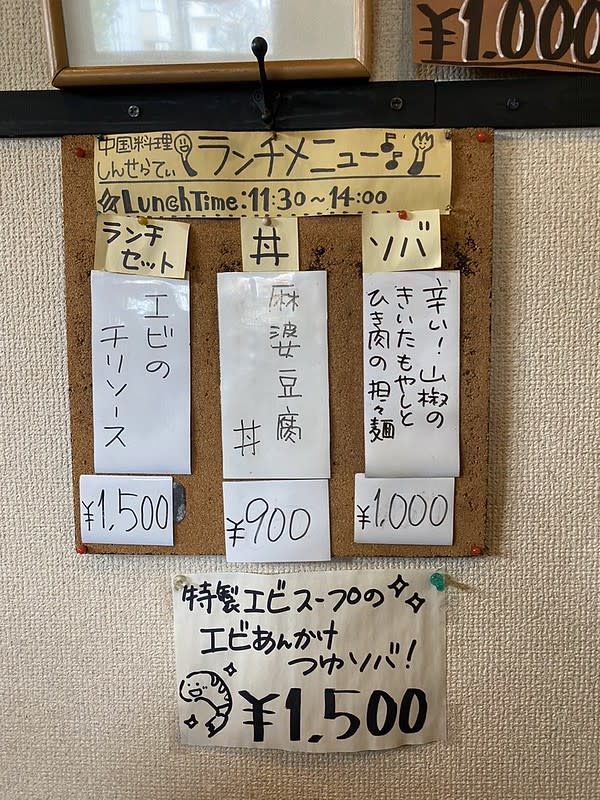 ¥1.000
中国料理
しんせらてぃ
ランチメニュー
LunchTime:11:30~14:00
ランチ
セット
エビの
チリソース
¥1,500
丼
麻婆豆腐
丼
¥900
ソバ
辛い!山椒の
きいたもやしと
ひき肉の担々麺
¥1,000
特製エビスープの
エビあんかけ
つゆソバ!
¥1.500